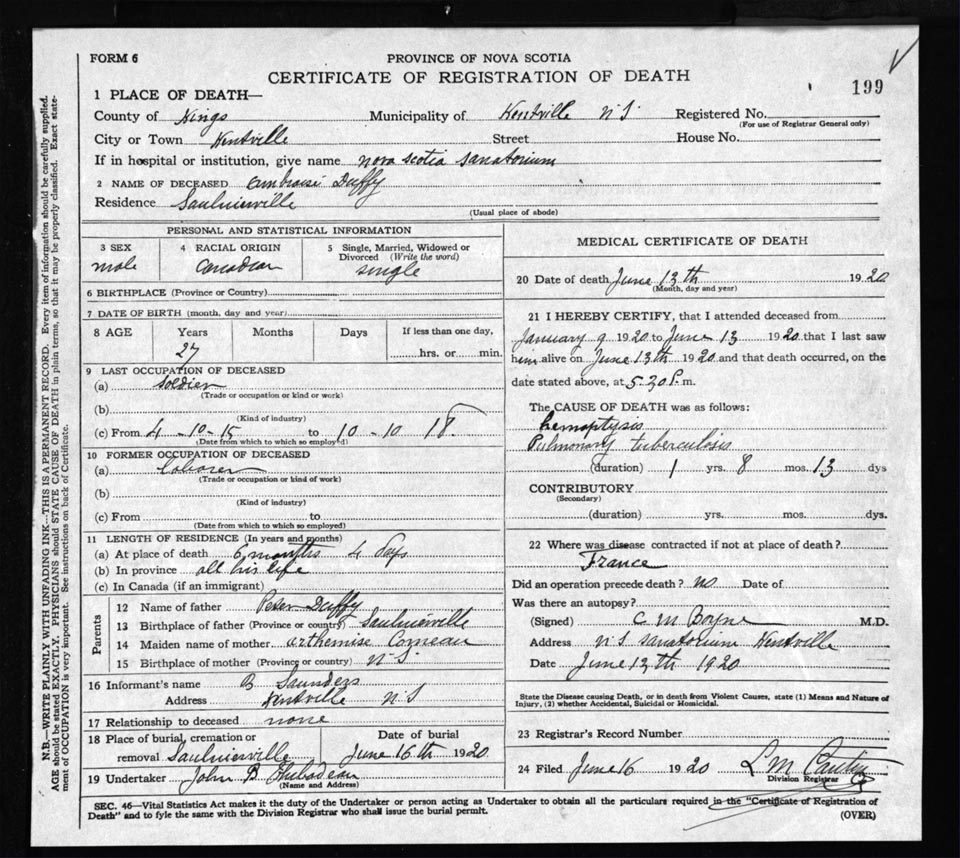 FORM 6
PROVINCE OF NOVA SCOTIA
CERTIFICATE OF REGISTRATION OF DEATH
199
1 PLACE OF DEATH—
County of Kings Municipality of Kentville N S Registered No.
(For use of Registrar General only)
City or Town Kentville Street House No.
If in hospital or institution, give name Nova Scotia Sanatorium
2 NAME OF DECEASED Ambroise Duffy
Residence Saulnierville
(Usual place of abode)
PERSONAL AND STATISTICAL INFORMATION
3 SEX 4 RACIAL ORIGIN 5 Single, Married, Widowed or Divorced (Write the word)
male Canadian single
6 BIRTHPLACE (Province or Country)
7 DATE OF BIRTH (month, day and year)
8 AGE Years Months Days If less than one day,
27 hrs. or min.
9 LAST OCCUPATION OF DECEASED
(a) Soldier
(Trade or occupation or kind or work)
(b)
(Kind of industry)
(c) From 4-10-15 to 10-10 18
(Date from which to which so employed)
10 FORMER OCCUPATION OF DECEASED
(a) Laborer
(Trade or occupation or kind of work)
(b)
(Kind of industry)
(c) From to
(Date from which to which so employed)
11 LENGTH OF RESIDENCE (In years and months)
(a) At place of death 6 months 4 days
(b) In province all his life
(c) In Canada (if an immigrant)
Parents
12 Name of father Peter Duffy
13 Birthplace of father (Province or country) Saulnierville
14 Maiden name of mother Arthemise Comeau
15 Birthplace of mother (Province or country) N.S.
16 Informant's name B Saunders
Address Kentville N S
17 Relationship to deceased none
18 Place of burial, cremation or Date of burial
removal Saulnierville June 16th 1920
19 Undertaker John B
(Name and Address)
MEDICAL CERTIFICATE OF DEATH
20 Date of death June 13th 1920
(Month, day and year)
21 I HEREBY CERTIFY, that I attended deceased from
January 9 1920 to June 13 1920 that I last saw
him alive on June 13th 1920 and that death occurred, on the
date stated above, at 5.30 P.m.
The CAUSE OF DEATH was as follows:
hemoptysis
Pulmonary tuberculosis
(duration) 1 yrs. 8 mos. 13 dys
CONTRIBUTORY
(Secondary)
(duration) yrs. mos. dys.
22 Where was disease contracted if not at place of death?
France
Did an operation precede death? no Date of
Was there an autopsy?
(Signed) C M Boyne M.D.
Address N S Sanatorium Kentville
Date June 13th 1920
State the Disease causing Death, or in death from Violent Causes, state (1) Means and Nature of
Injury, (2) whether Accidental, Suicidal or Homicidal.
23 Registrar's Record Number
24 Filed June 16 1920 L M
Division Registrar
SEC. 46—Vital Statistics Act makes it the duty of the Undertaker or person acting as Undertaker to obtain all the particulars required in the "Certificate of Registration of
Death" and to fyle the same with the Division Registrar who shall issue the burial permit.
(OVER)
N.B.—WRITE PLAINLY WITH UNFADING INK—THIS IS A PERMANENT RECORD. Every item of information should be carefully supplied.
AGE should be stated EXACTLY. PHYSICIANS should STATE CAUSE OF DEATH in plain terms, so that it may be properly classified. Exact state-
ment of OCCUPATION is very important. See instructions on back of Certificate.